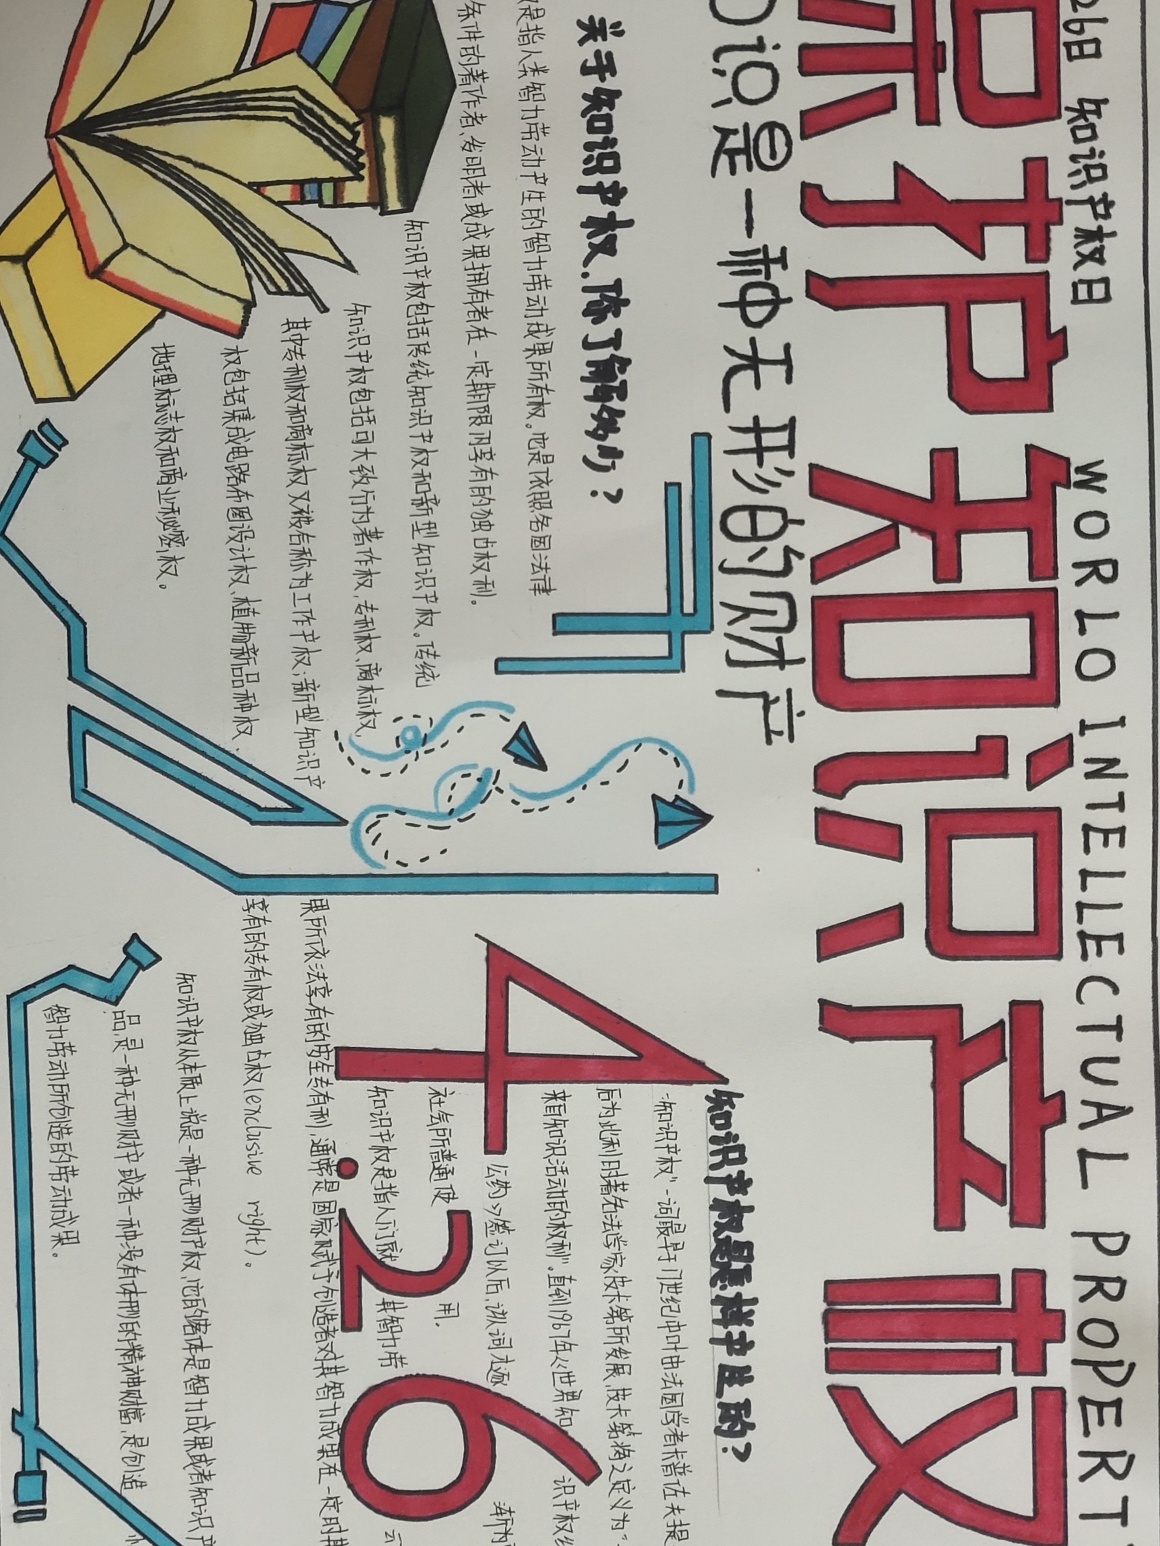 26日 知识产权日
WORLD INTELLECTUAL PROPERT
保护知识产权
知识是一种无形的财产
关于知识产权,你了解多少?
是指人类智力劳动产生的智力劳动成果所有权。也是依照各国法律
条件的著作者、发明者或成果拥有者在一定期限内享有的独占权利。
知识产权包括传统知识产权和新型知识产权。传统
知识产权包括可大致行为著作权,专利权、商标权
其中专利权和商标权又被名称为工作产权;新型知识产
权包括集成电路布图设计权、植物新品种权、
地理标志权和商业秘密权。
知识产权是怎样产生的?
“知识产权”一词最早于17世纪中叶由法国学者卡普佐夫提
后为比利时著名法学家皮卡第所发展,皮卡第将之定义为“
来自知识活动的权利”。直到1967年《世界知识产权
公约》签订以后,该词才逐渐为
社会所普通使用。
知识产权是指人们就其智力劳
果所依法享有的专利,通常是国家赋予创造者对其智力成果在一定时
享有的专有权或独占权(exclusive right)。
知识产权从本质上说是一种无形财产权,它的客体是智力成果或者知识产
品,是一种无形财产或者一种没有体形的精神财富,是创造
智力劳动所创造的劳动成果。
4.26